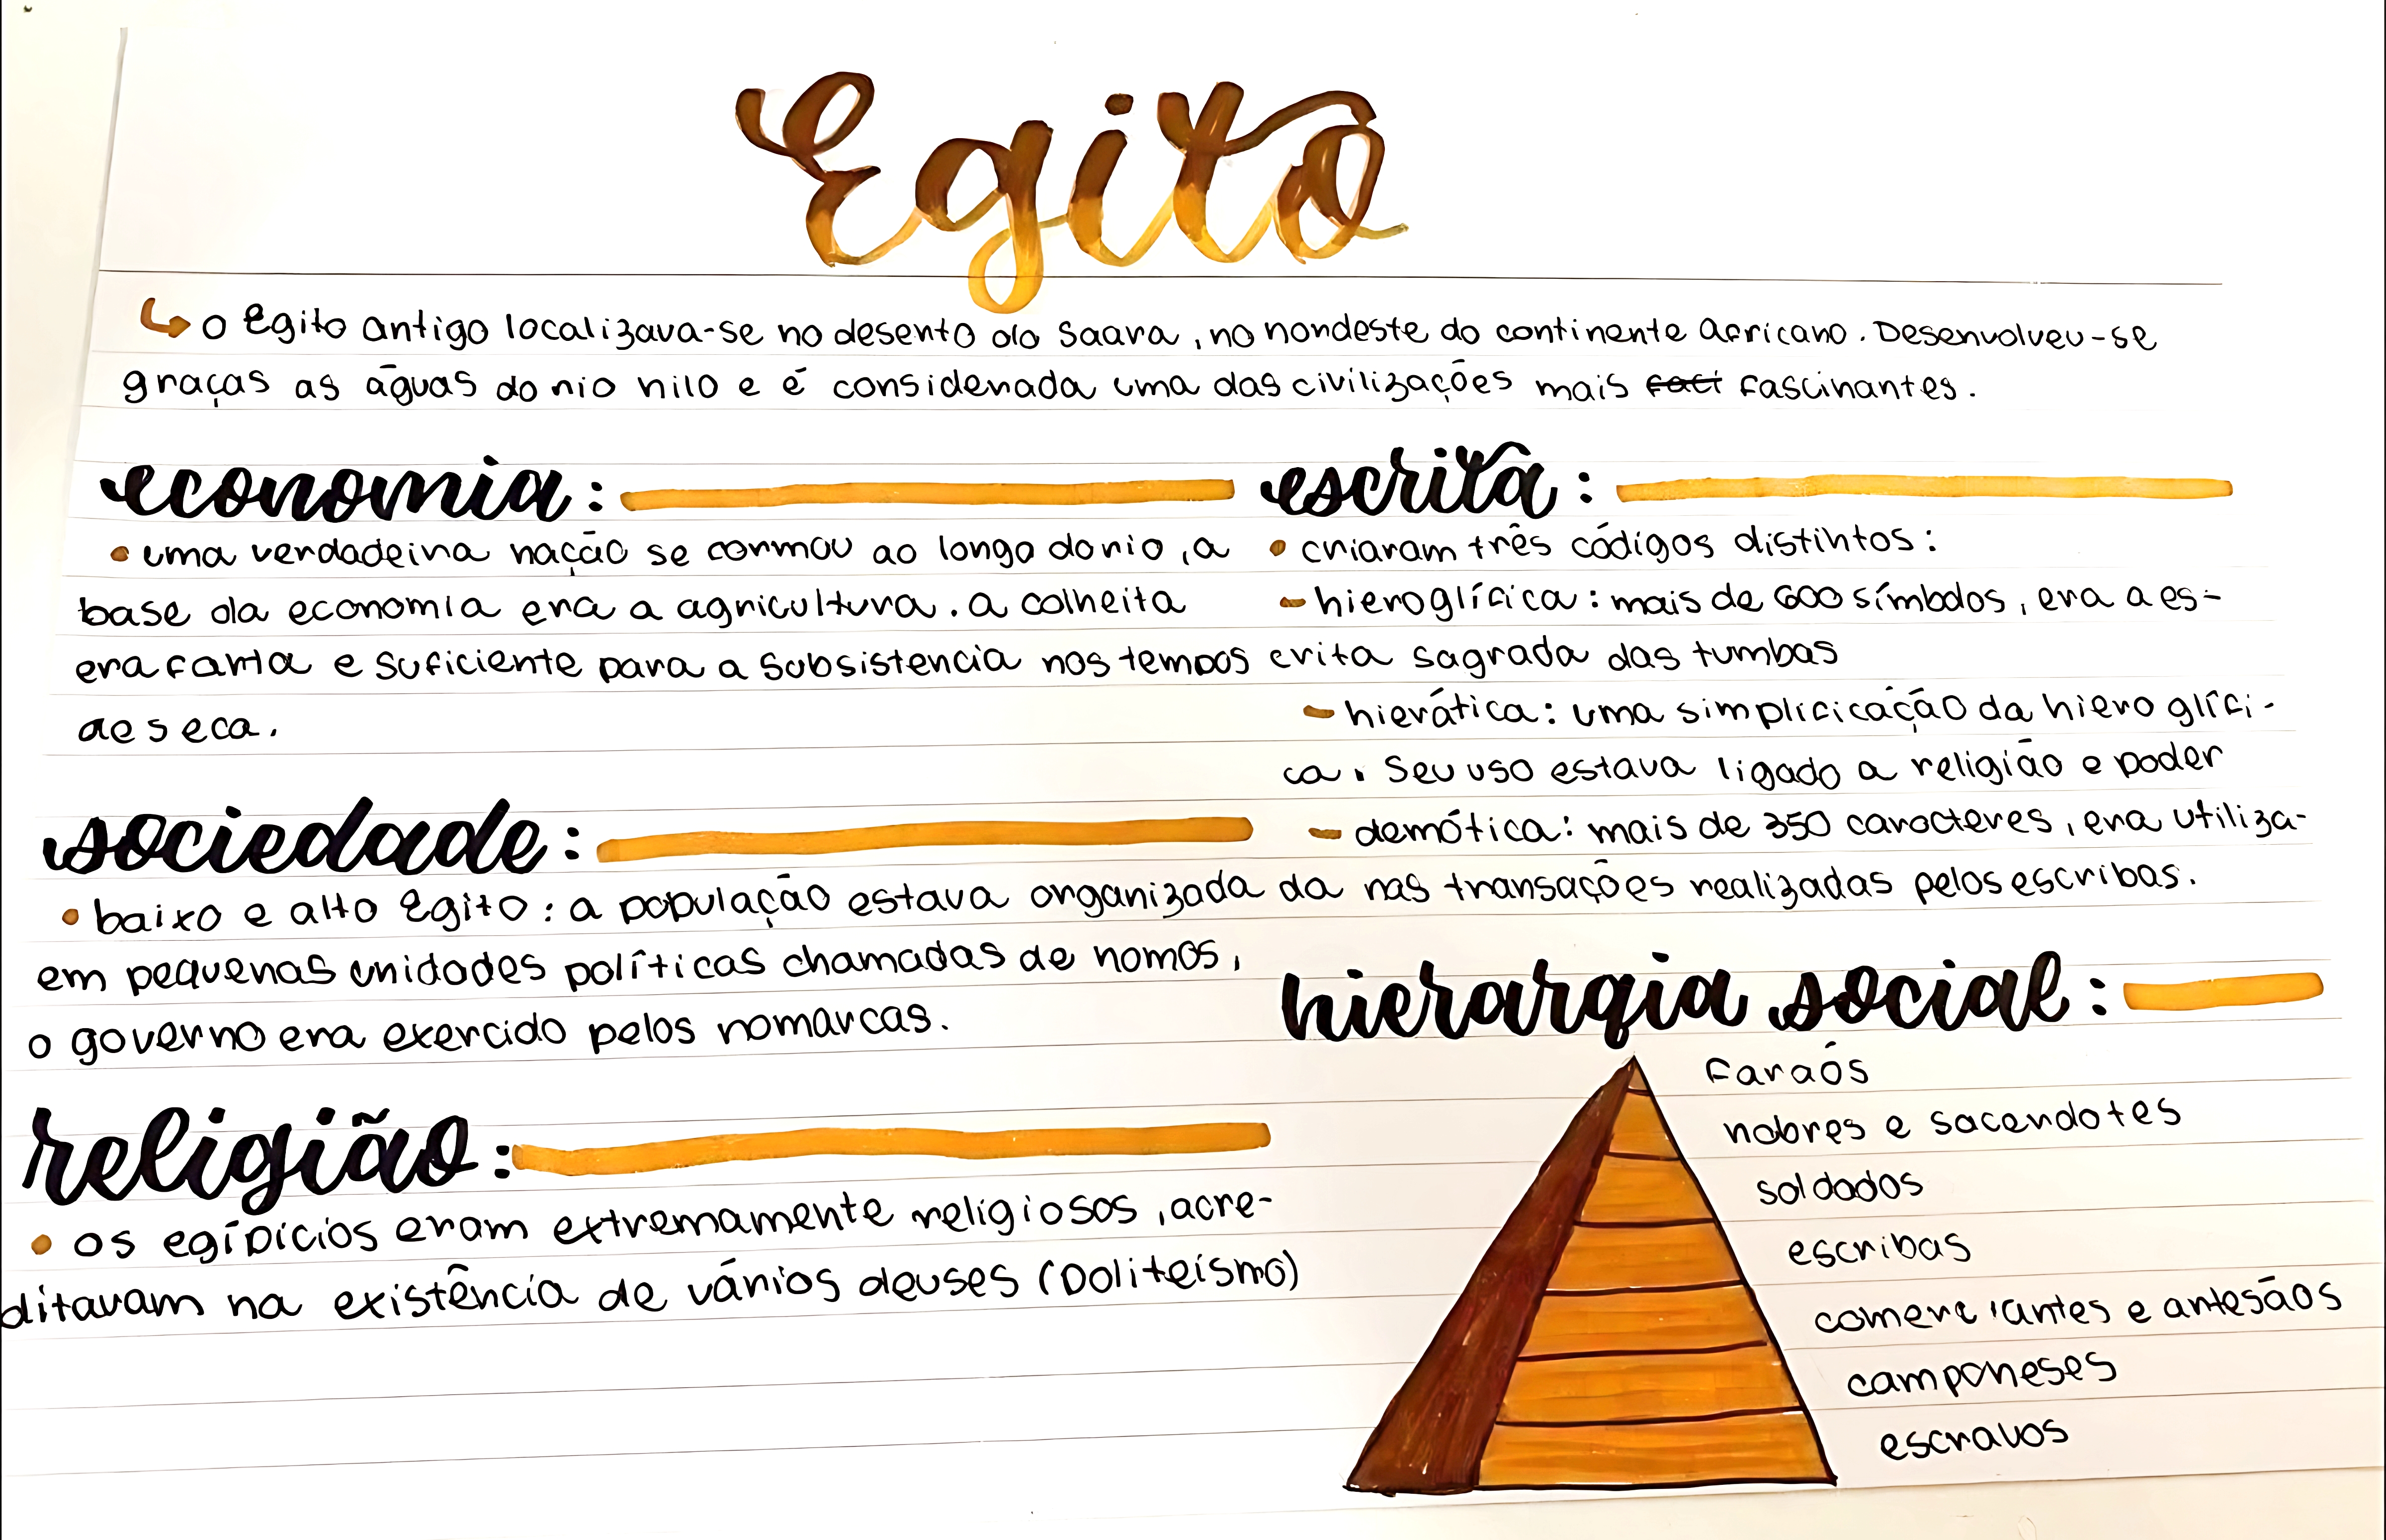 Egito
↳ o Egito antigo localizava-se no deserto do Saara, no nordeste do continente africano. Desenvolveu-se
graças as águas do rio nilo e é considerada uma das civilizações mais ~~faci~~ fascinantes.
economia:
• uma verdadeira nação se formou ao longo do rio, a
base da economia era a agricultura. a colheita
era farta e suficiente para a subsistencia nos tempos
de seca.
sociedade:
• baixo e alto Egito: a população estava organizada
em pequenas unidades políticas chamadas de nomos,
o governo era exercido pelos nomarcas.
religião:
• os egípicios eram extremamente religiosos, acre-
ditavam na existência de vários deuses (politeísmo)
escrita:
• criaram três códigos distintos:
- hieroglífica: mais de 600 símbolos, era a es-
crita sagrada das tumbas
- hierática: uma simplificação da hieroglífi-
ca. Seu uso estava ligado a religião e poder
- demótica: mais de 350 caracteres, era utiliza-
da nas transações realizadas pelos escribas.
hierarqia social:
faraós
nobres e sacerdotes
soldados
escribas
comerciantes e artesãos
camponeses
escravos